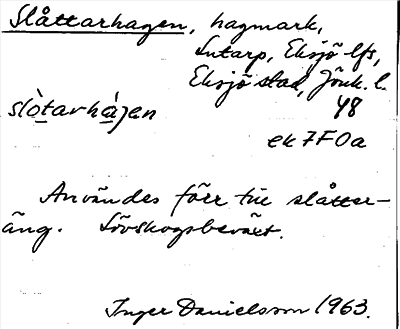 Slåttarhagen, hagmark,
Lutarp, Eksjö lfs,
Eksjö stad, Jönk. l.
slòtarhàgen 48
ek7F0a
Användes förr till slåtter-
äng. Lövskogsbeväxt.
Inger Danielsson 1963.